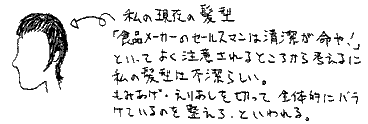 私の現在の髪型
「食品メーカーのセールスマンは清潔が命や!」
といってよく注意されるところから考えるに
私の髪型は不潔らしい。
もみあげ・えりあしを切って全体的にバラ
けているのを整えろ、といわれる。